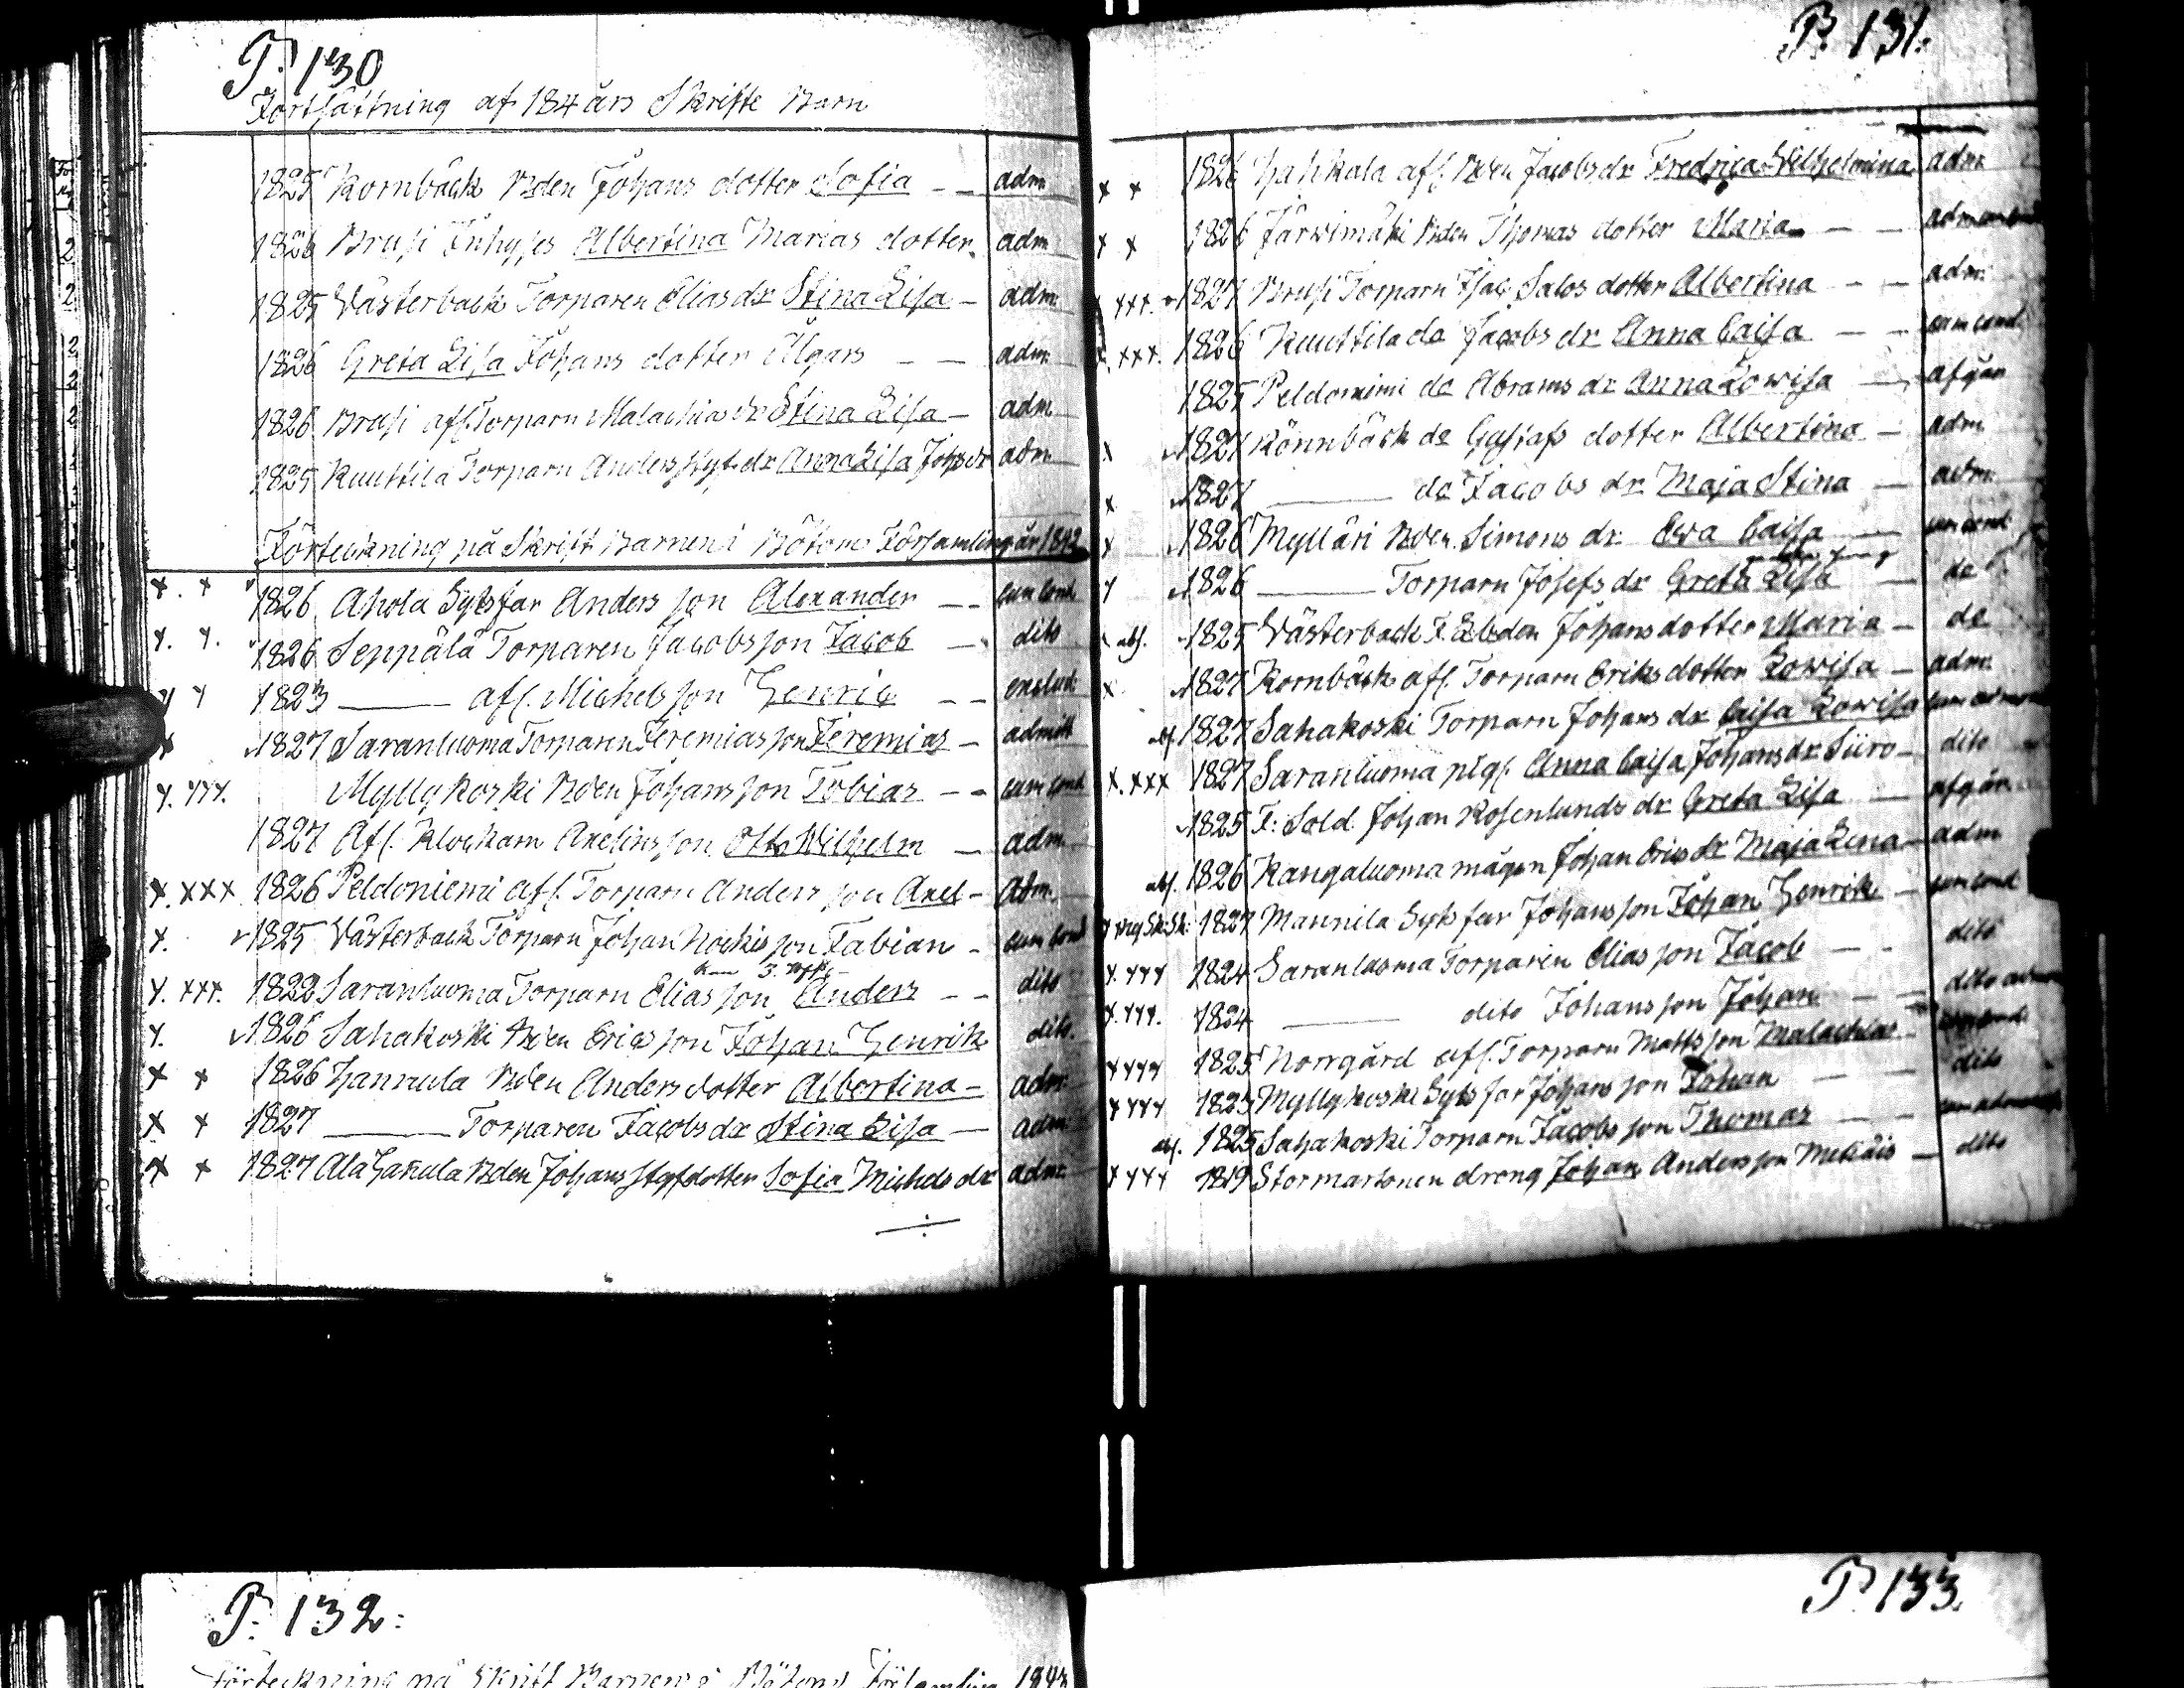 P. 130
Fortsättning af 184 års Skrifte Barn
1825 Kornbäck Bden Johans dotter Sofia — adm.
1826 Brusi Inhyses Albertina Marias dotter. adm.
1825 Västerback Torparen Elias dr Stina Lisa — adm.
1826 Greta Lisa Johans dotter Älgars — — adm.
1826 Brusi afl. Torparn Malachias dr Stina Lisa — adm.
1825 Kuuttila Torparn Anders styf dr Anna Lisa Johs dr adm.
Förteckning på Skrift Barnen i Bötom Församling år 1842
x. x 1826 Ahola Gyts far Anders son Alexander — cum cond.
x. x. 1826 Seppälä Torparen Jacobs son Jacob — dito
x x 1823 — afl. Michels son Henric — — exclud.
x 1827 Saranluoma Torparen Jeremias son Jeremias — admitt
x. xxx. Myllykoski Bden Johans son Tobias — — cum cond
1827 Afl. Klockarn Axelins son Otto Wilhelm — adm.
x. xxx 1826 Peldoniemi afl. Torparn Anders son Axel — adm.
x. 1825 Västerback Torparn Johan Nockis son Fabian — cum cond
x. xxx. 1822 Saranluoma Torparn Elias son Anders — — dito
x. 1826 Sahakoski Bden Erics son Johan Henrik dito.
x x 1826 Hannula Bden Anders dotter Albertina — adm:
x x 1827 — Torparen Jacobs dr Stina Lisa — adm:
x x 1827 Ala Hakula Bden Johans styfdotter Sofia Michels dr adm:
P. 131.
x x 1826 Hahkala afl. Bden Jacobs dr Fredrica Wilhelmina adm.
x x 1826 Järwimäki Bden Thomas dotter Maria — —
xxx. 1827 Brusi Torparn Isac Salos dotter Albertina — — adm:
xxx. 1826 Kuuttila do Jacobs dr Anna Caisa — — cum cond.
1825 Peldoniemi do Abrams dr Anna Lowisa — afgån
x 1827 Rönnbäck do Gustafs dotter Albertina — adm
x 1827 — do Jacobs dr Maja Stina — adm.
x 1826 Mylläri Bden Simons dr Ewa Caisa — cum cond
x 1826 — Torparn Josefs dr Greta Lisa — do
abs. 1825 Västerback Johans dotter Maria — do
x 1827 Kornbäck afl. Torparn Eriks dotter Lowisa — adm:
abs. 1827 Sahakoski Torparn Johans dr Caisa Lowisa
x. xxx 1827 Saranluoma pigs. Anna Caisa Johans dr Siiro — dito
1825 F: Sold. Johan Rosenlunds dr Greta Lisa — afgån.
abs. 1826 Kangaluoma mågen Johan Erics dr Maja Lena — adm
1827 Mannila Gyts far Johans son Johan Henrik — cum cond
x. xxx 1824 Saranluoma Torparen Elias son Jacob — — dito
x. xxx. 1824 — dito Johans son Johan — — dito
xxxx 1825 Norrgård afl. Torparn Matts son Malachias —
xxxx 1823 Myllykoski Gyts far Johans son Johan — — dito
abs. 1825 Sahakoski Torparn Jacobs son Thomas — —
xxxx 1819 Stormartonen dreng Johan Anders son — dito
P. 132:
Förteckning på Skrift Barnen i Bötoms Församling 1843
P. 133.